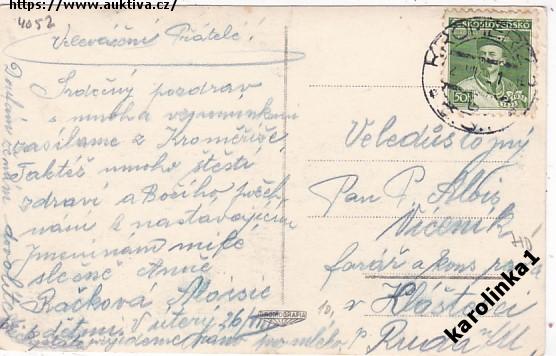 https://www.auktiva.cz
4052
Velevážení Přátelé!
Srdečný pozdrav
s mnoha vzpomínkami
zasíláme z Kroměříže
Taktéž mnoho štěstí
zdraví a Božího požeh
nání k nastávajícím
jmeninám milé
slečně Anně
Račková Aloisie
s dětmi. V úterý 26/VII
přijedeme ráno pro mléko.
ČESKOSLOVENSKO
50
KROMĚŘÍŽ
Veledůstojný
Pan P. Alois
Viceník
farář a kons. rada
v Klášteci
p. Ruda
GRAFIA
karolinka1